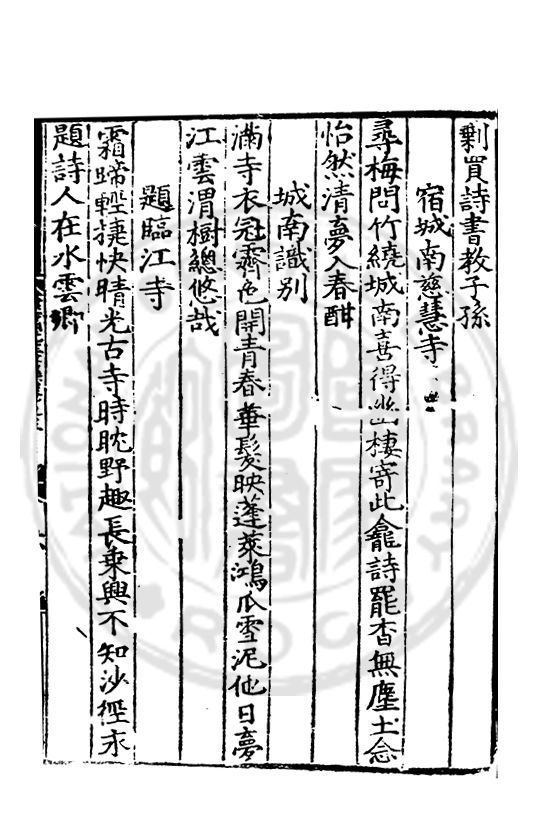 剩買詩書教子孫
宿城南慈慧寺
尋梅問竹繞城南喜得幽棲寄此龕詩罷杳無塵土念
怡然清夢入春酣
城南識別
滿寺衣冠霽色開青春華髮映蓬萊鴻爪雪泥他日夢
江雲渭樹總悠哉
題臨江寺
霜蹄輕捷快晴光古寺時眈野趣長乘興不知沙徑永
題詩人在水雲鄉